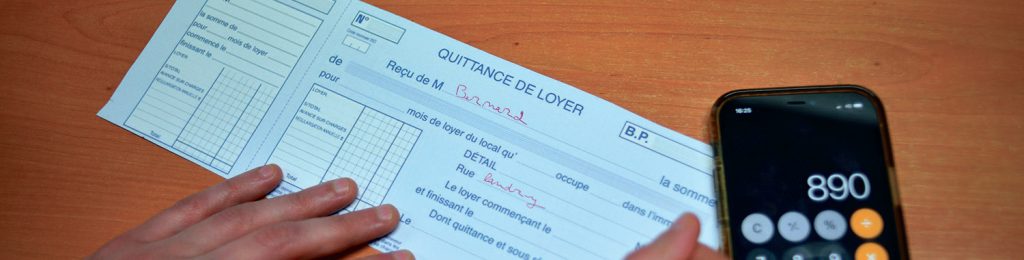 la somme de
pour mois de loyer
commencé le
finissant le
S/TOTAL
AVANCE SUR CHARGES
Total
N°
QUITTANCE DE LOYER
B.P.
Reçu de M Bernard
de
la somme
pour
mois de loyer du local qu' occupe
dans l'imm
DÉTAIL
LOYER
Rue
Le loyer commençant le
et finissant le
Dont quittance et sous
S/TOTAL
AVANCE SUR CHARGES
Total
Le
16:25
890
C
%